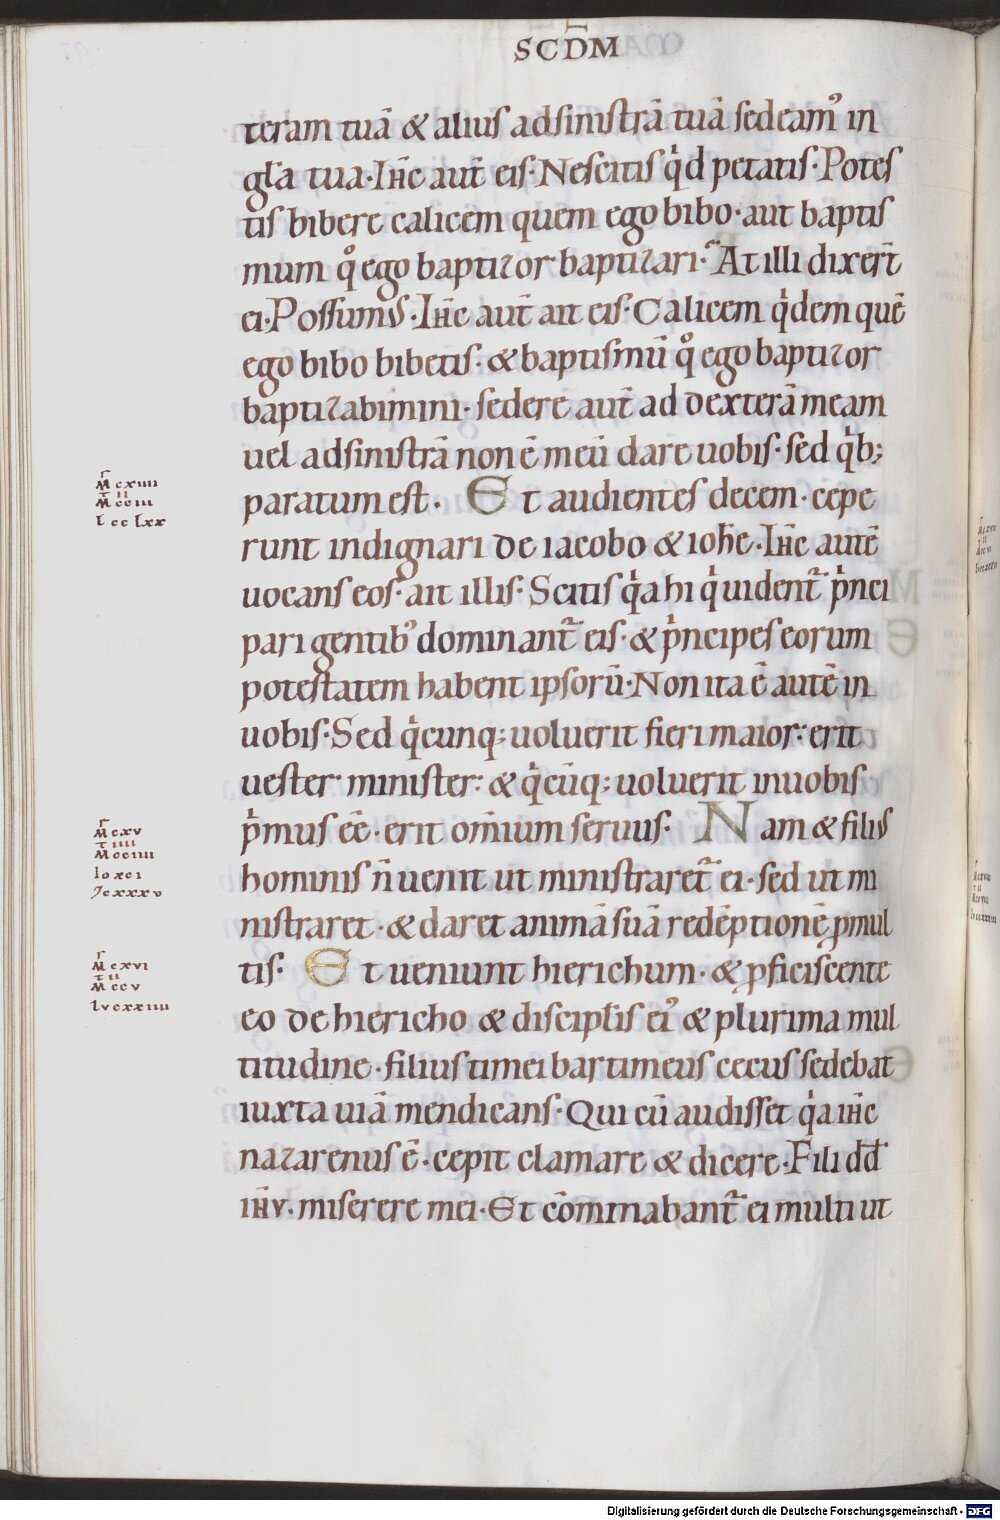 SCDM
teram tuā & alius ad sinistrā tuā sedeam᾽ in
gl̄a tua · Ih̄c aut̄ eis · Nescitis qͥd petatis · Potes
tis bibere calicem quem ego bibo · aut baptis
mum qͦ ego baptizor baptizari · At illi dixer̄t
ei · Possumus · Ih̄c aut̄ ait eis · Calicem qͥdem quē
ego bibo bibetis · & baptismū qͦ ego baptizor
baptizabimini · sedere aut̄ ad dexterā meam
uel ad sinistrā non ē meū dare uobis · sed qͥb;
paratum est · Et audientes decem · cepe
runt indignari de iacobo & ioh̄e · Ih̄c autē
uocans eos · ait illis · Scitis qͥa hi qͥ uident̄ pͥnci
pari gentib᾽ dominant̄ eis · & pͥncipes eorum
potestatem habent ipsorū · Non ita ē autē in
uobis · Sed qͥcunq; uoluerit fieri maior : erit
uester minister : & qͥcūq; uoluerit in uobis
pͥmus ēē · erit om̄ium seruus · Nam & filius
hominis n̄ uenit ut ministraret̄ ei · sed ut mi
nistraret · & daret animā suā redēptionē ꝓ mul
tis · Et ueniunt hierichum · & ꝓficiscente
eo de hiericho & discipl̄is ei᾽ & plurima mul
titudine · filius timei bartimeus cecus sedebat
iuxta uiā mendicans · Qui cū audisset qͥa ih̄c
nazarenus ē · cepit clamare & dicere · Fili dd̄
ih̄v · miserere mei · Et cōminabant̄ ei multi ut
M cxiiii
II
M cciii
L cclxx
M cxv
IIII
M cciiii
Io xci
M cxvi
II
M ccv
L vcxxiiii
Digitalisierung gefördert durch die Deutsche Forschungsgemeinschaft - DFG